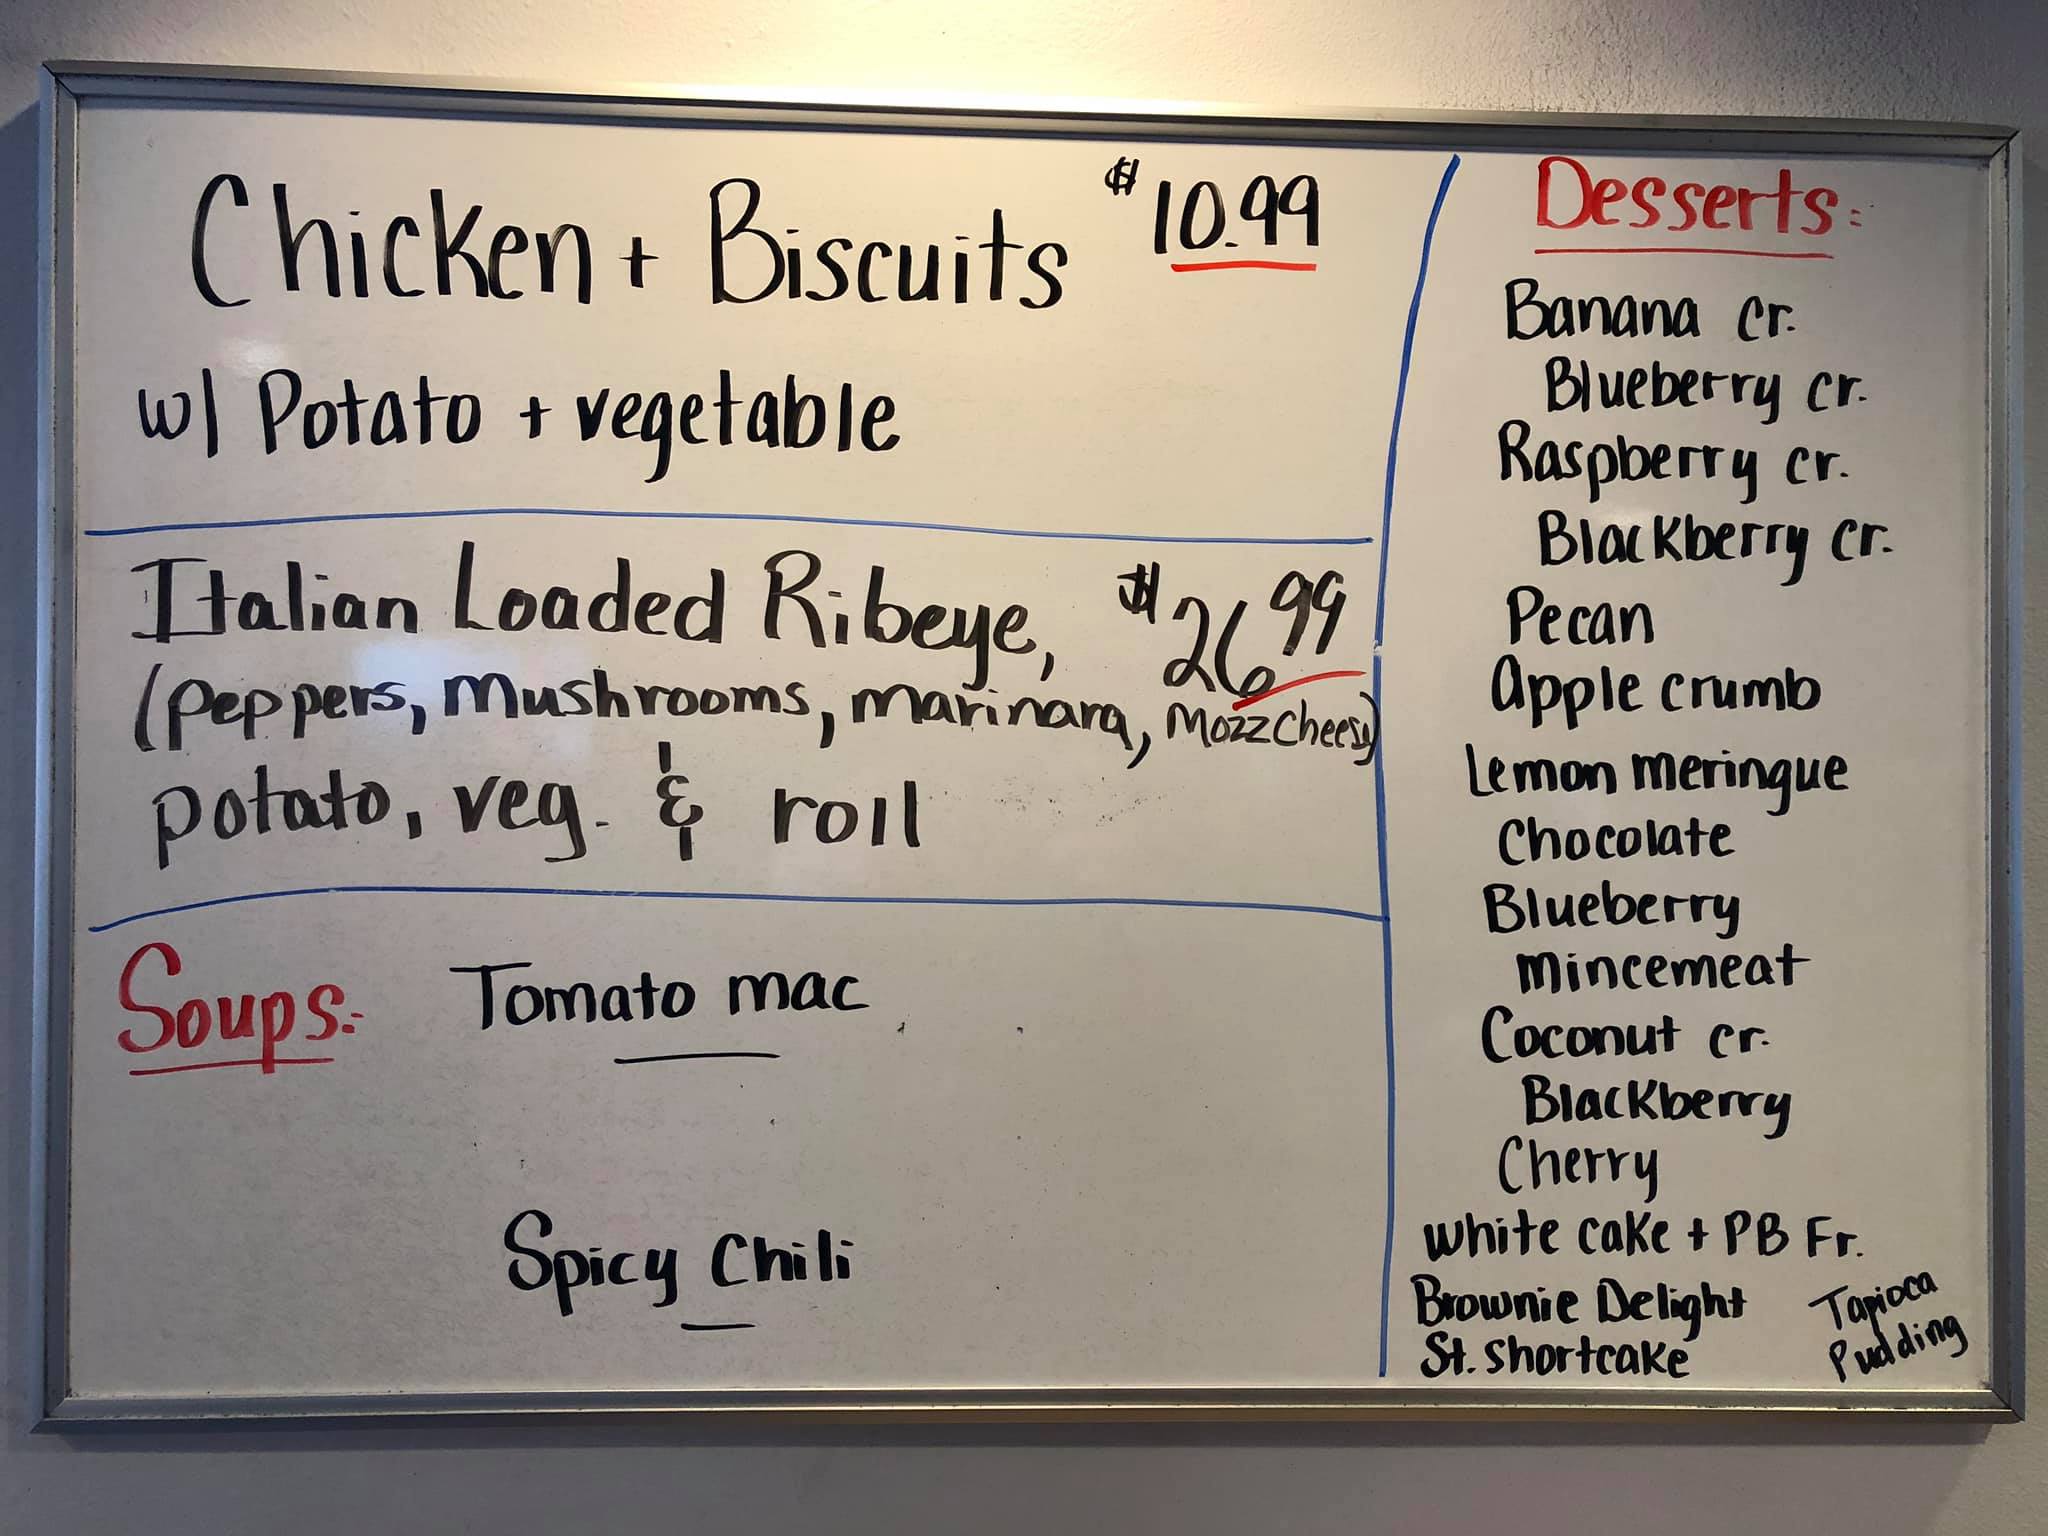 Chicken + Biscuits $10.99
w/ Potato + vegetable
Italian Loaded Ribeye, $26.99
(peppers, Mushrooms, marinara, Mozz Cheese)
potato, veg. & roll
Soups:
Tomato mac
Spicy Chili
Desserts:
Banana cr.
Blueberry cr.
Raspberry cr.
Blackberry cr.
Pecan
Apple crumb
Lemon meringue
Chocolate
Blueberry
Mincemeat
Coconut cr.
Blackberry
Cherry
white cake + PB Fr.
Brownie Delight
St. Shortcake
Tapioca
Pudding